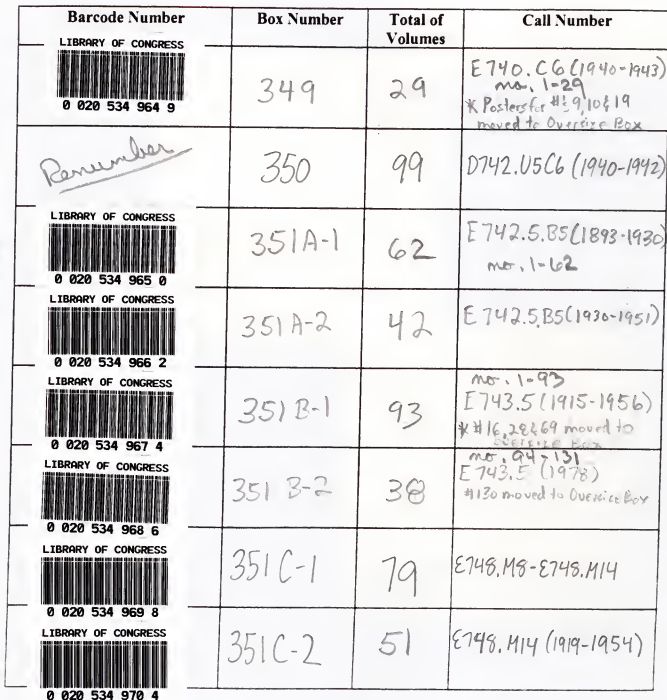 Barcode Number Box Number Total of Volumes Call Number
LIBRARY OF CONGRESS
0 020 534 964 9
349
29
E740.C6 (1940-1943)
no. 1-29
* Posters for #s 9, 10 & 19
moved to Oversize Box
Renumber
350
99
D742.U5C6 (1940-1942)
LIBRARY OF CONGRESS
0 020 534 965 0
351A-1
62
E742.5.B5(1893-1930)
no. 1-62
LIBRARY OF CONGRESS
0 020 534 966 2
351A-2
42
E742.5.B5(1930-1951)
LIBRARY OF CONGRESS
0 020 534 967 4
351B-1
93
no. 1-93
E743.5 (1915-1956)
* #16, 28 & 69 moved to
Oversize Box
LIBRARY OF CONGRESS
0 020 534 968 6
351B-2
38
no. 94-131
E743.5 (1978)
#130 moved to Oversize Box
LIBRARY OF CONGRESS
0 020 534 969 8
351C-1
79
E748.M8-E748.M14
LIBRARY OF CONGRESS
0 020 534 970 4
351C-2
51
E748.M14 (1919-1954)